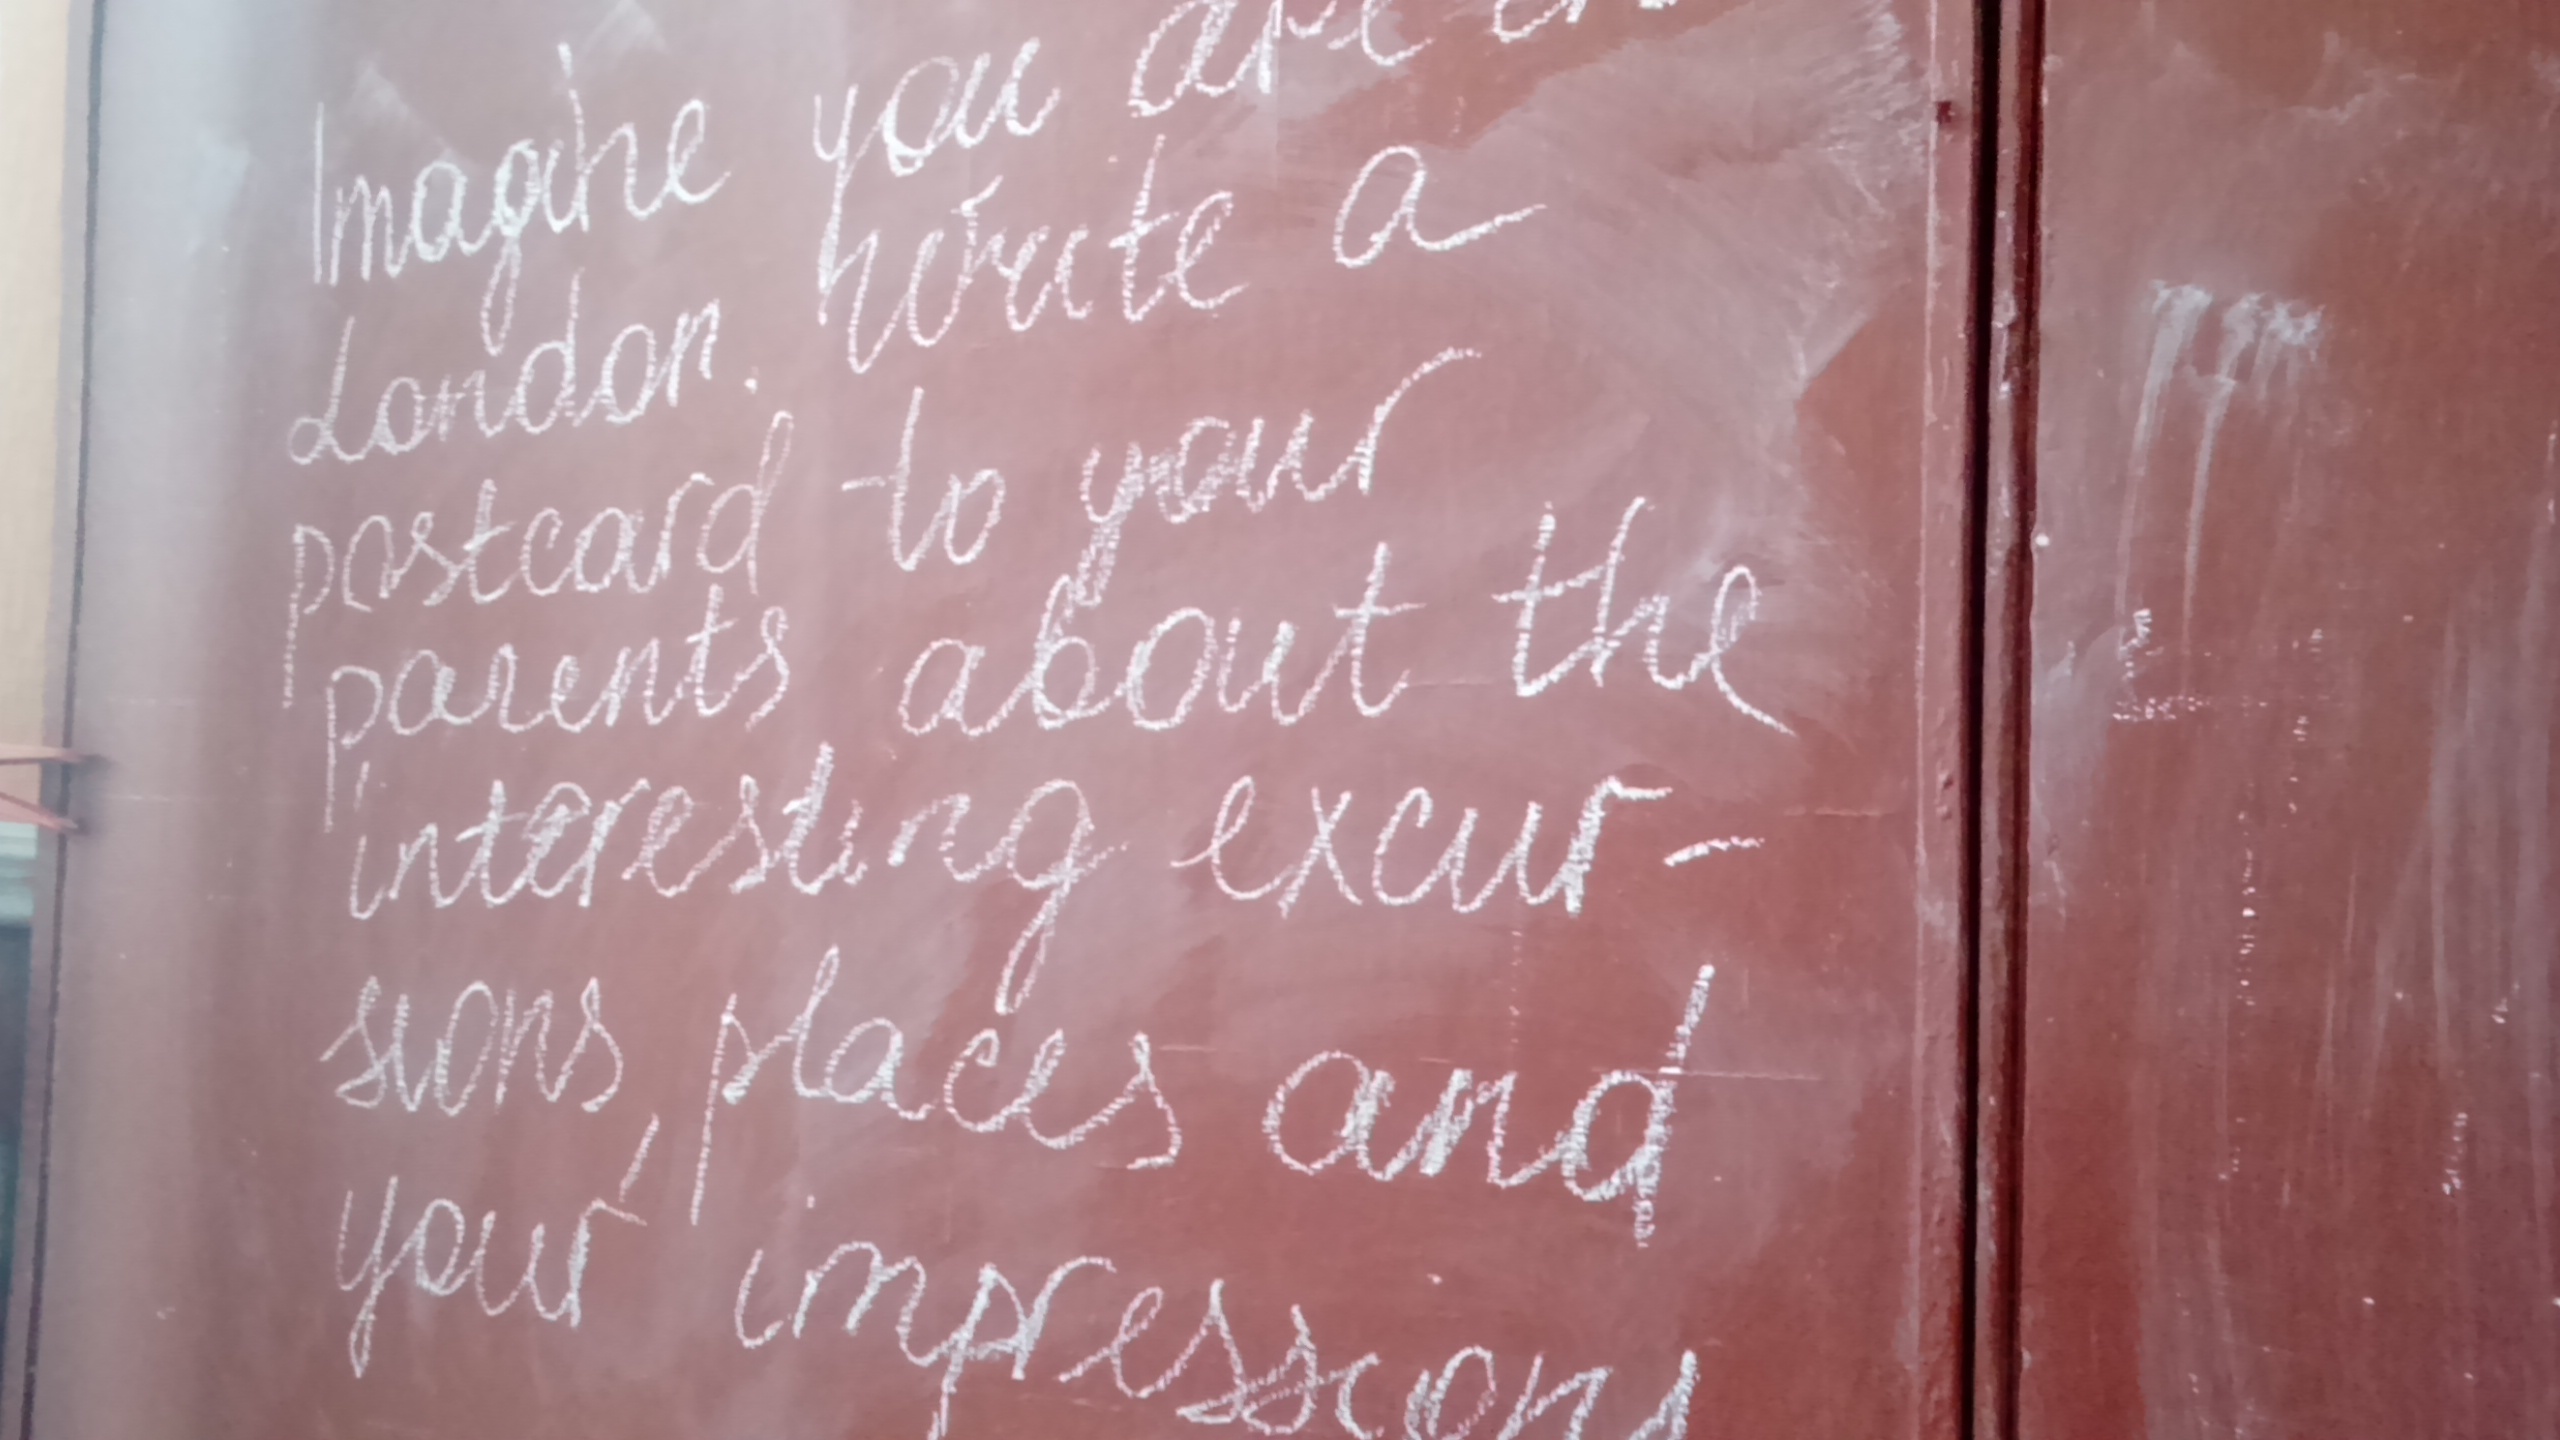 Imagine you are in
London. Write a
postcard to your
parents about the
interesting excur-
sions, places and
your impressions